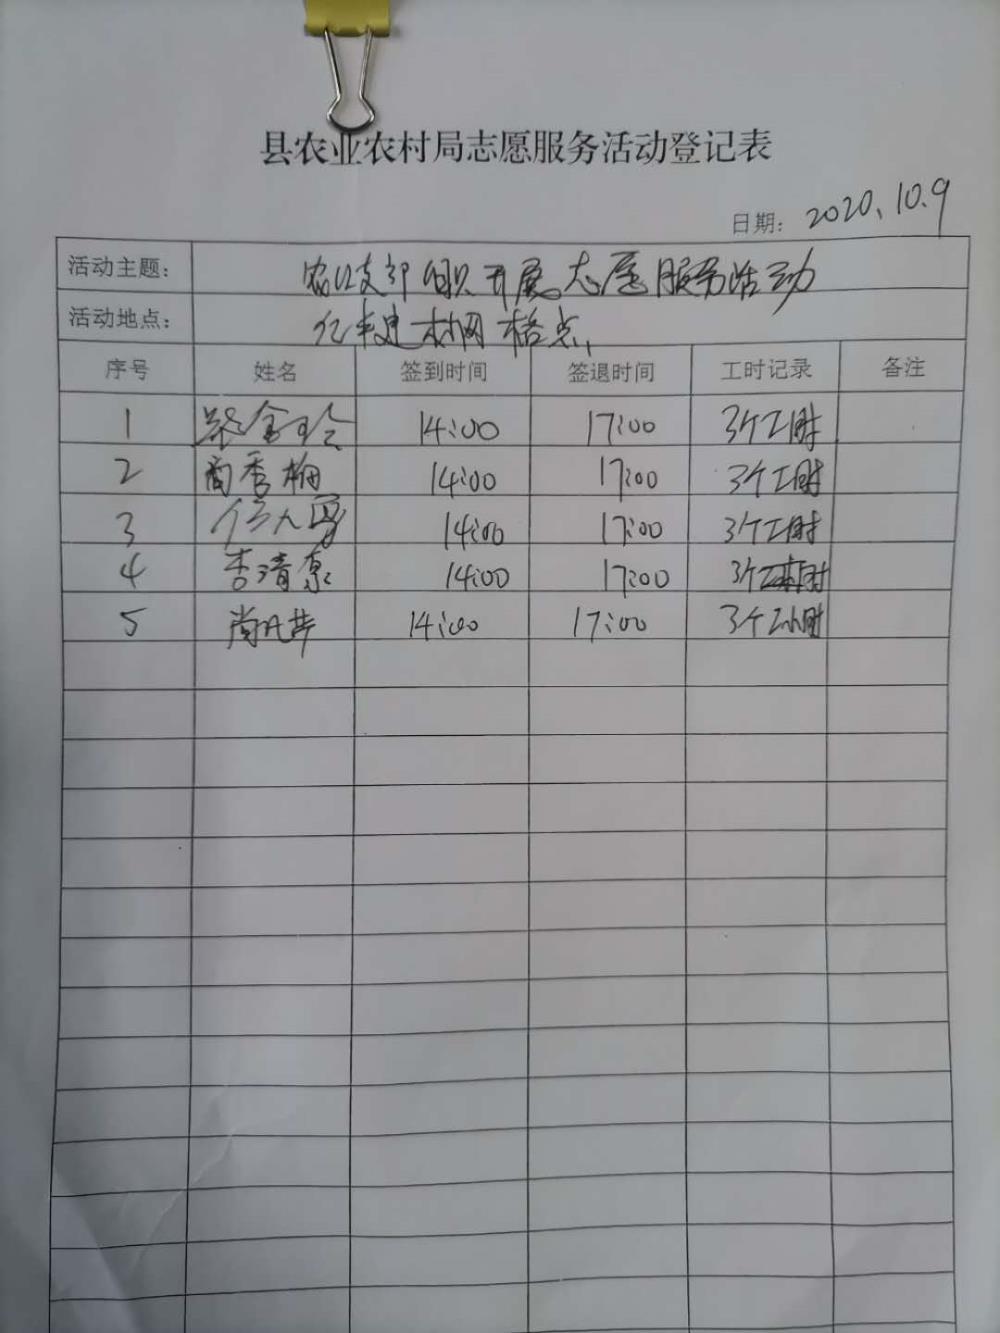 县农业农村局志愿服务活动登记表
日期: 2020.10.9
活动主题: 支部组织开展志愿服务活动
活动地点: 建材网格点
序号 姓名 签到时间 签退时间 工时记录 备注
1 14:00 17:00 3个工时
2 商秀梅 14:00 17:00 3个工时
3 14:00 17:00 3个工时
4 李清泉 14:00 17:00 3个工时
5 14:00 17:00 3个工时